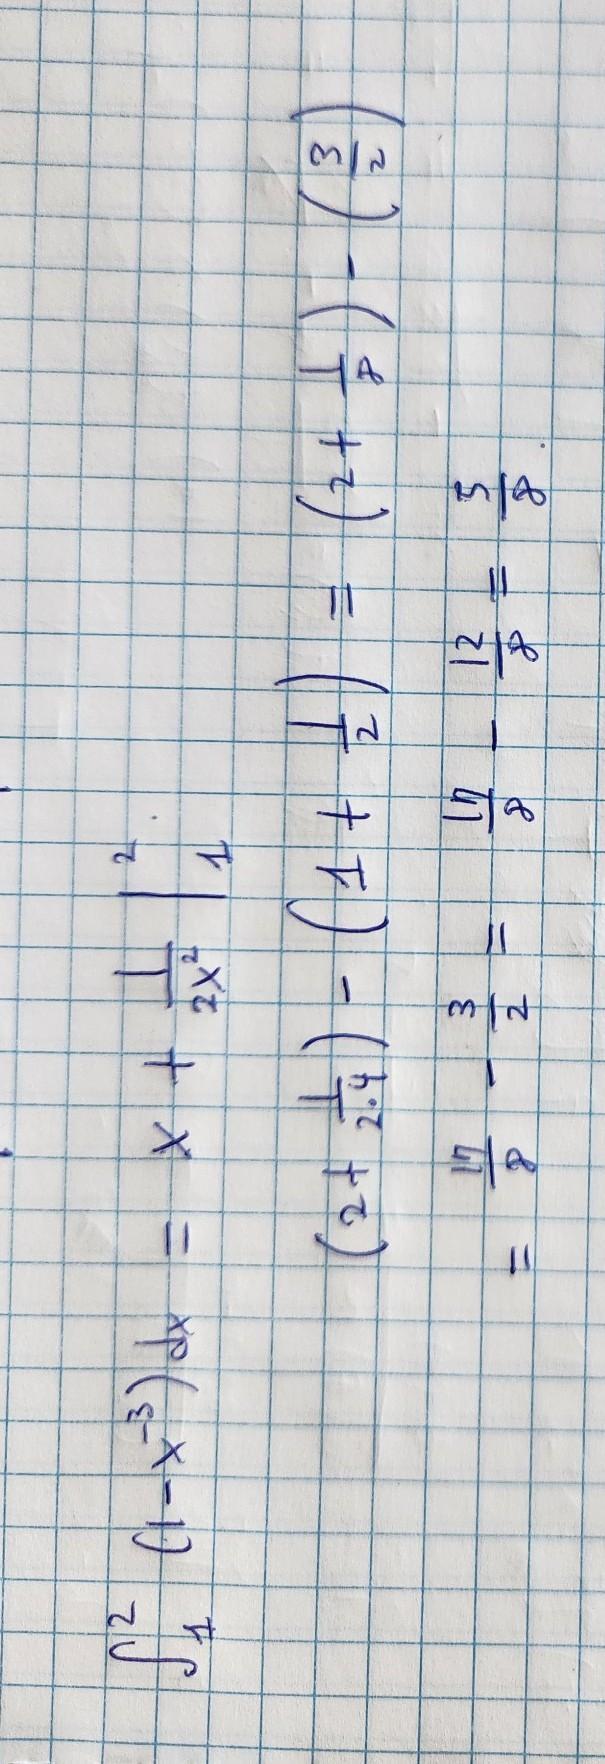 ∫₁² (1 - x⁻³) dx = x + 1/(2x²) |₁²
(2 + 1/(2·4)) - (1 + 1/2) = (2 + 1/8) - (3/2)
= 17/8 - 3/2 = 17/8 - 12/8 = 5/8